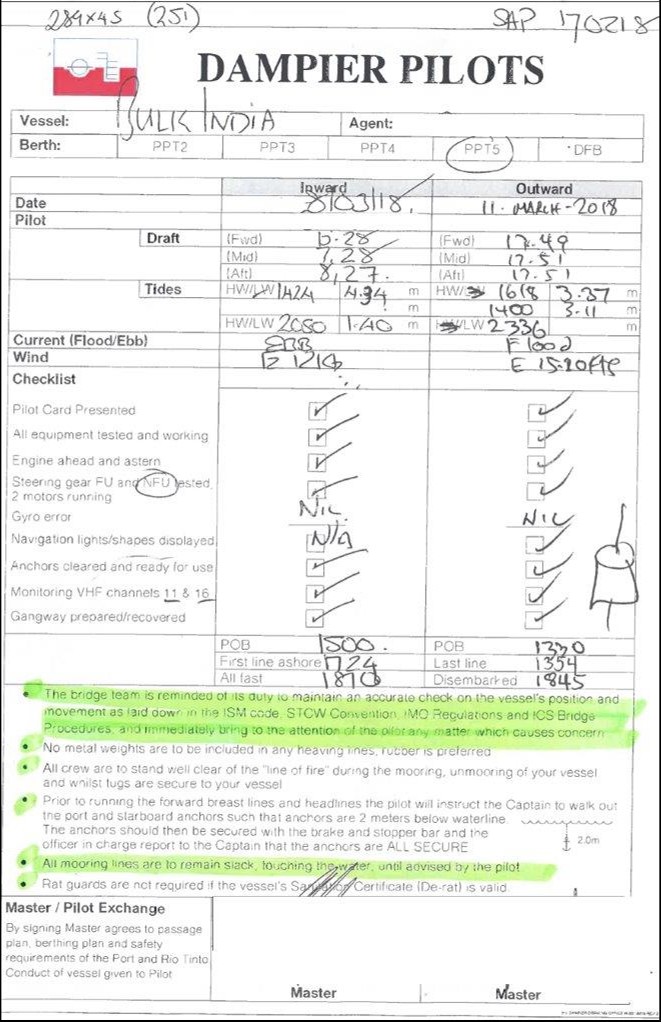 289x45 (251) SAP 170218
DAMPIER PILOTS
Vessel: BULK INDIA Agent:
Berth: PPT2 PPT3 PPT4 PPT5 DFB
Inward Outward
Date 8/03/18. 11-MARCH-2018
Pilot
Draft (Fwd) 6.28 (Fwd) 17.49
(Mid) 7.28 (Mid) 17.51
(Aft) 8,27. (Aft) 17.51
Tides HW/LW 1424 4.34 m HW/ 1618 3.37 m
m 1400 3.11 m
HW/LW 2050 1.40 m LW 2336 m
Current (Flood/Ebb) EBB Flood
Wind E E 15-20kts
Checklist
Pilot Card Presented
All equipment tested and working
Engine ahead and astern
Steering gear FU and NFU tested,
2 motors running
Gyro error NIL NIL
Navigation lights/shapes displayed N/A
Anchors cleared and ready for use
Monitoring VHF channels 11 & 16
Gangway prepared/recovered
POB 1500. POB 1330
First line ashore 1724 Last line 1354
All fast 1810 Disembarked 1845
• The bridge team is reminded of its duty to maintain an accurate check on the vessel's position and
movement as laid down in the ISM code, STCW Convention, IMO Regulations and ICS Bridge
Procedures, and immediately bring to the attention of the pilot any matter which causes concern
• No metal weights are to be included in any heaving lines, rubber is preferred
• All crew are to stand well clear of the "line of fire" during the mooring, unmooring of your vessel
and whilst tugs are secure to your vessel
• Prior to running the forward breast lines and headlines the pilot will instruct the Captain to walk out
the port and starboard anchors such that anchors are 2 meters below waterline.
The anchors should then be secured with the brake and stopper bar and the
officer in charge report to the Captain that the anchors are ALL SECURE
2.0m
• All mooring lines are to remain slack, touching the water, until advised by the pilot
• Rat guards are not required if the vessel's Sanitation Certificate (De-rat) is valid.
Master / Pilot Exchange
By signing Master agrees to passage
plan, berthing plan and safety
requirements of the Port and Rio Tinto
Conduct of vessel given to Pilot
Master Master